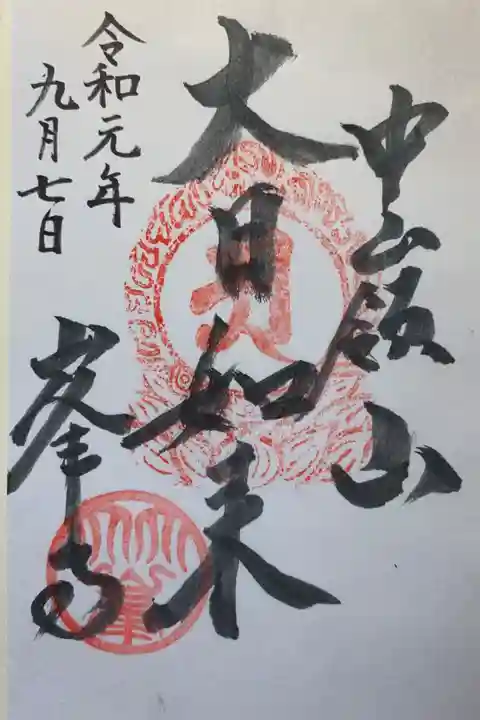 中山飯山
大日如来
峯寺
令和元年
九月七日